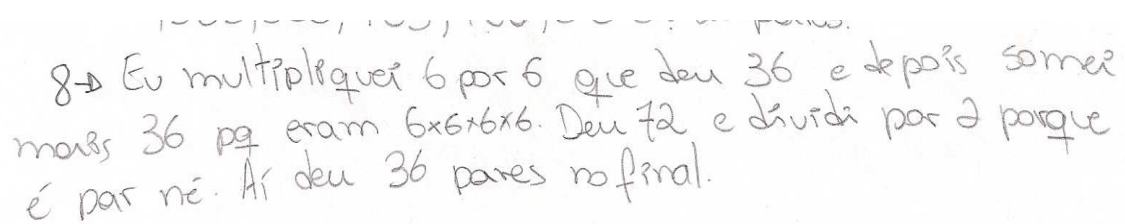 8→ Eu multipliquei 6 por 6 que deu 36 e depois somei
mais 36 pq eram 6x6x6x6. Deu 72 e dividi por 2 porque
é par né. Aí deu 36 pares no final.